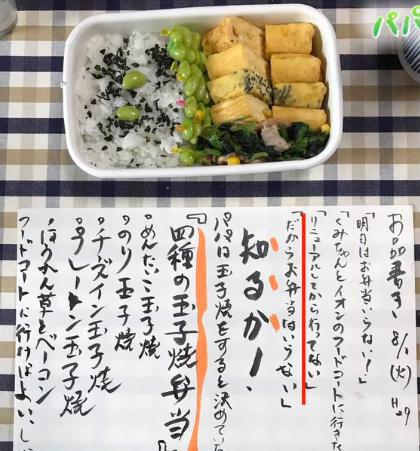 パパ
お品書き 8/1(火) H29
「明日はお弁当いらない!」
「くみちゃんとイオンのフードコートに行きた
「リニューアルしてから行ってない」
「だからお弁当はいらない」
知るかー!
パパは玉子焼をすると決めていた
『四種の玉子焼弁当』
°めんたいこ玉子焼
°のり玉子焼
°チーズイン玉子焼
°プレーン玉子焼
°ほうれん草とベーコン
フードコートに行けばよい、し